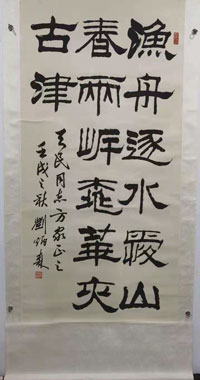 漁舟逐水愛山
春兩岸桃華夾
古津
民同志方家正之
壬戌之秋 劉炳森